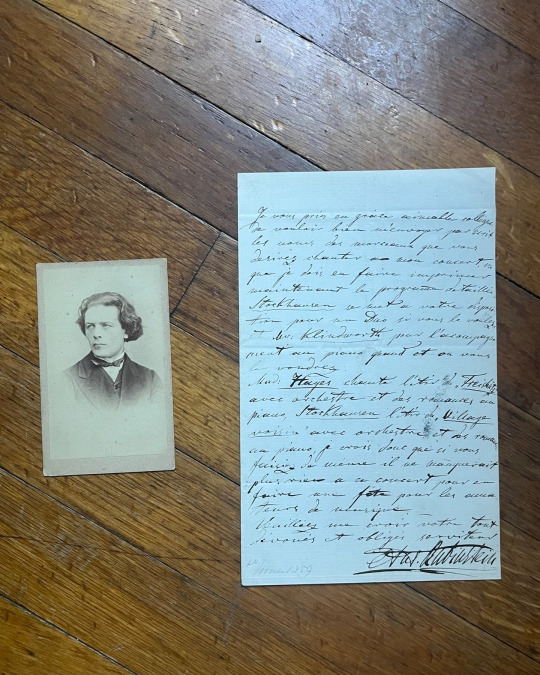 Je vous prie en grâce aimable collègue
de vouloir bien m'envoyer par écrit
les noms des morceaux que vous
désirez chanter a mon concert
que je dois en faire imprimer
maintenant le programme détaillé
Stockhausen est a votre
tion pour un Duo si vous le voulez
et Mr. Klindworth pour l'accompagne
ment au piano quand et ou vous
le voudrez
Mad. Hayes chante l'Air du Freischütz
avec orchestre et des romances au
piano, Stockhausen l'Air du Village
voisin avec orchestre et des
au piano, je crois donc que si vous
faisiez de meme il ne manquerait
plus rien a ce concert pour en
faire une fete pour les ama
teurs de musique
Veuillez me croire votre tout
dévoué et obligé serviteur
Ant. Rubinstein